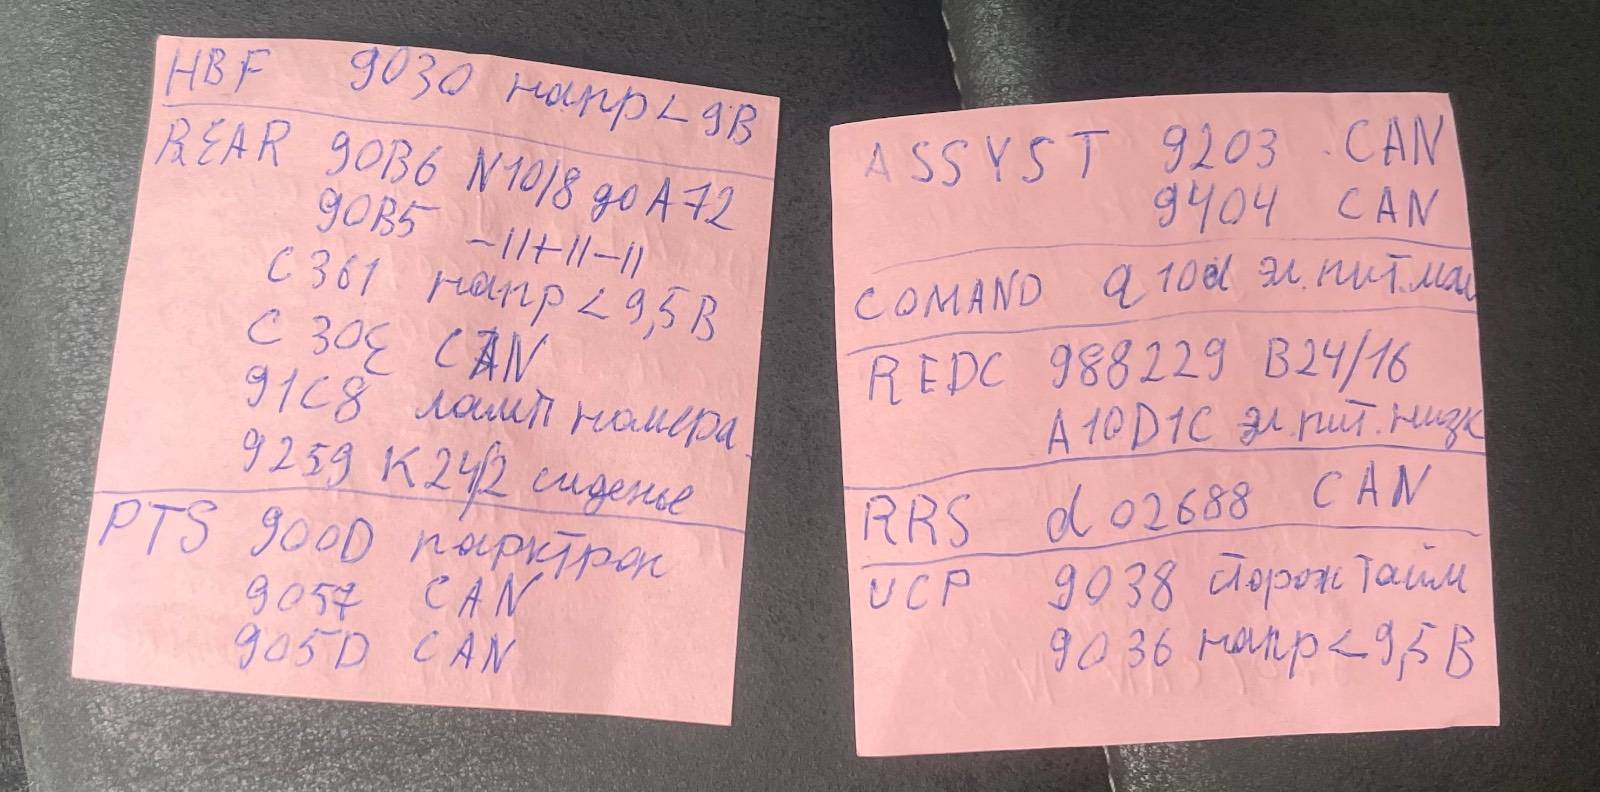 HBF 9030 напр < 9В
REAR 90B6 N10/8 до A72
90B5 -11+11-11
C361 напр < 9,5В
C30E CAN
91C8 ламп номера
9259 K24/2 сиденье
PTS 900D парктрон
9057 CAN
905D CAN
ASSYST 9203 CAN
9404 CAN
COMAND a10d эл. пит. мал
REDC 988229 B24/16
A10D1C эл. пит. низк
RRS d02688 CAN
UCP 9038 сторож Тайм
9036 напр < 9,5В